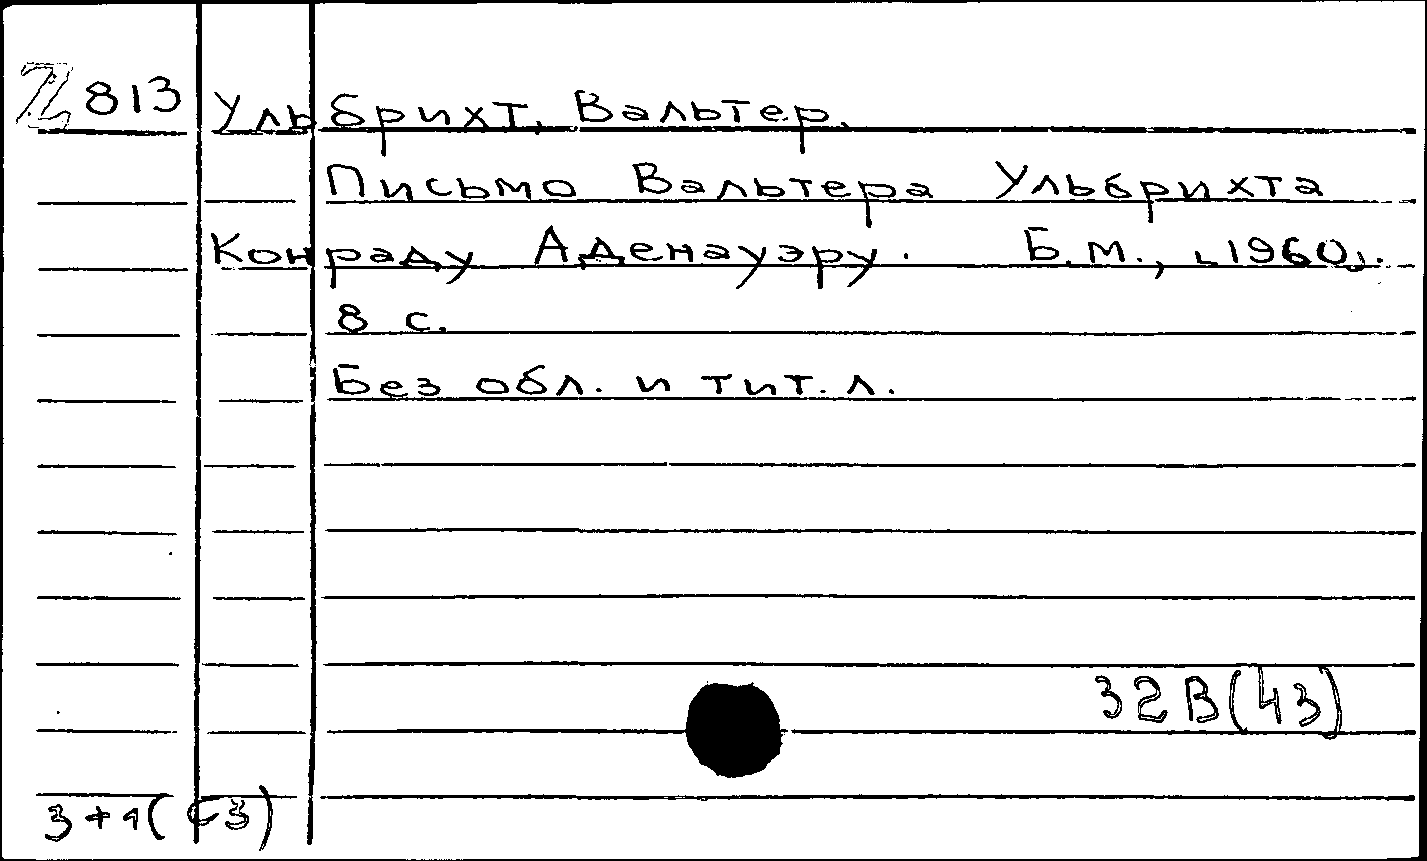 Z 813 Ульбрихт, Вальтер.
Письмо Вальтера Ульбрихта
Конраду Аденауэру. Б.м., [1960].
8 с.
Без обл. и тит. л.
32В(43)
3+1(С3)